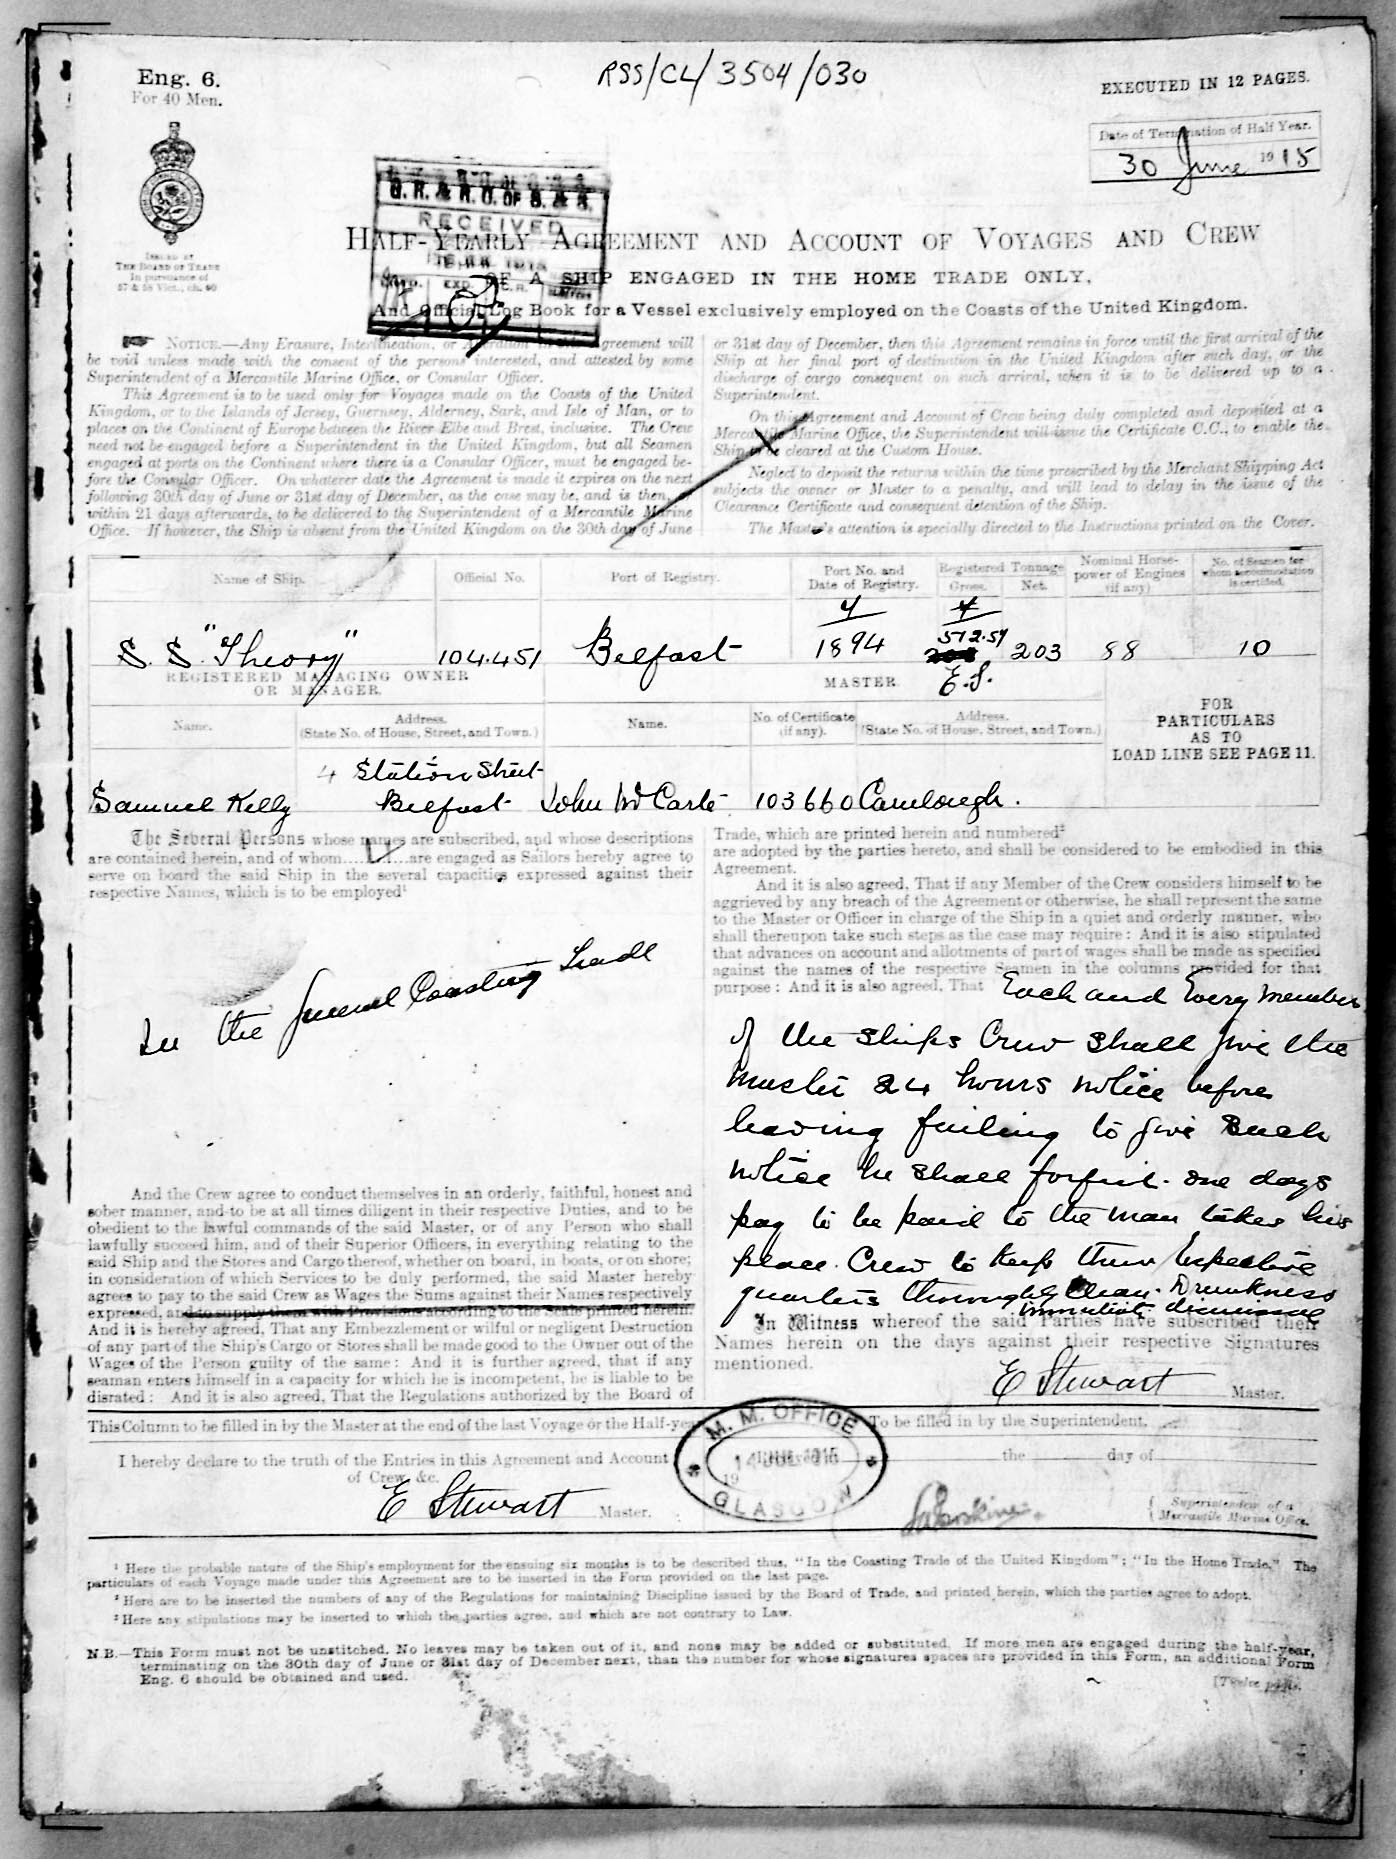 RSS/CL/3504/030
Eng. 6.
For 40 Men.
EXECUTED IN 12 PAGES.
Date of Termination of Half Year.
30 June 1915
ISSUED BY
THE BOARD OF TRADE
In pursuance of
57 & 58 Vict., ch. 60
RECEIVED
HALF-YEARLY AGREEMENT AND ACCOUNT OF VOYAGES AND CREW
OF A SHIP ENGAGED IN THE HOME TRADE ONLY,
And Official Log Book for a Vessel exclusively employed on the Coasts of the United Kingdom.
NOTICE.—Any Erasure, Interlineation, or Alteration in this Agreement will
be void unless made with the consent of the persons interested, and attested by some
Superintendent of a Mercantile Marine Office, or Consular Officer.
This Agreement is to be used only for Voyages made on the Coasts of the United
Kingdom, or to the Islands of Jersey, Guernsey, Alderney, Sark, and Isle of Man, or to
places on the Continent of Europe between the River Elbe and Brest, inclusive. The Crew
need not be engaged before a Superintendent in the United Kingdom, but all Seamen
engaged at ports on the Continent where there is a Consular Officer, must be engaged be-
fore the Consular Officer. On whatever date the Agreement is made it expires on the next
following 30th day of June or 31st day of December, as the case may be, and is then, or
within 21 days afterwards, to be delivered to the Superintendent of a Mercantile Marine
Office. If however, the Ship is absent from the United Kingdom on the 30th day of June
or 31st day of December, then this Agreement remains in force until the first arrival of the
Ship at her final port of destination in the United Kingdom after such day, or the
discharge of cargo consequent on such arrival, when it is to be delivered up to a
Superintendent.
On this Agreement and Account of Crew being duly completed and deposited at a
Mercantile Marine Office, the Superintendent will issue the Certificate C.C., to enable the
Ship to be cleared at the Custom House.
Neglect to deposit the returns within the time prescribed by the Merchant Shipping Act
subjects the owner or Master to a penalty, and will lead to delay in the issue of the
Clearance Certificate and consequent detention of the Ship.
The Master's attention is specially directed to the Instructions printed on the Cover.
Name of Ship. Official No. Port of Registry. Port No. and Date of Registry. Registered Tonnage Gross. Net. Nominal Horse-power of Engines (if any) No. of Seamen for whom accommodation is certified.
S.S. "Theory" 104.451 Belfast 4/1894 512.59 203 88 10
E.S.
REGISTERED MANAGING OWNER
OR MANAGER.
MASTER.
FOR
PARTICULARS
AS TO
LOAD LINE SEE PAGE 11.
Name. Address. (State No. of House, Street, and Town.) Name. No. of Certificate (if any). Address. (State No. of House, Street, and Town.)
4 Station Street
Samuel Kelly Belfast John McCarte 103660
The Several Persons whose names are subscribed, and whose descriptions
are contained herein, and of whom are engaged as Sailors hereby agree to
serve on board the said Ship in the several capacities expressed against their
respective Names, which is to be employed¹
In the General Coasting Trade
And the Crew agree to conduct themselves in an orderly, faithful, honest and
sober manner, and to be at all times diligent in their respective Duties, and to be
obedient to the lawful commands of the said Master, or of any Person who shall
lawfully succeed him, and of their Superior Officers, in everything relating to the
said Ship and the Stores and Cargo thereof, whether on board, in boats, or on shore;
in consideration of which Services to be duly performed, the said Master hereby
agrees to pay to the said Crew as Wages the Sums against their Names respectively
expressed, and to supply them with Provisions according to the Scale printed herein.
And it is hereby agreed, That any Embezzlement or wilful or negligent Destruction
of any part of the Ship's Cargo or Stores shall be made good to the Owner out of the
Wages of the Person guilty of the same: And it is further agreed, that if any
seaman enters himself in a capacity for which he is incompetent, he is liable to be
disrated: And it is also agreed, That the Regulations authorized by the Board of
Trade, which are printed herein and numbered²
are adopted by the parties hereto, and shall be considered to be embodied in this
Agreement.
And it is also agreed, That if any Member of the Crew considers himself to be
aggrieved by any breach of the Agreement or otherwise, he shall represent the same
to the Master or Officer in charge of the Ship in a quiet and orderly manner, who
shall thereupon take such steps as the case may require: And it is also stipulated
that advances on account and allotments of part of wages shall be made as specified
against the names of the respective Seamen in the columns provided for that
purpose: And it is also agreed, That Each and Every member
of the ships Crew shall give the
master 24 hours notice before
leaving failing to give such
notice he shall forfeit one days
pay to be paid to the man takes his
place. Crew to keep their respective
quarters thoroughly Clean. Drunkness
immediate dismissal
In Witness whereof the said Parties have subscribed their
Names herein on the days against their respective Signatures
mentioned.
E Stewart Master.
This Column to be filled in by the Master at the end of the last Voyage or the Half-year
To be filled in by the Superintendent.
I hereby declare to the truth of the Entries in this Agreement and Account
of Crew, &c.
the day of
E Stewart Master.
M. M. OFFICE
14 JUL 1915
GLASGOW
Superintendent of a
Mercantile Marine Office.
¹ Here the probable nature of the Ship's employment for the ensuing six months is to be described thus, "In the Coasting Trade of the United Kingdom"; "In the Home Trade." The
particulars of each Voyage made under this Agreement are to be inserted in the Form provided on the last page.
² Here are to be inserted the numbers of any of the Regulations for maintaining Discipline issued by the Board of Trade, and printed herein, which the parties agree to adopt.
³ Here any stipulations may be inserted to which the parties agree, and which are not contrary to Law.
N.B.—This Form must not be unstitched. No leaves may be taken out of it, and none may be added or substituted. If more men are engaged during the half-year,
terminating on the 30th day of June or 31st day of December next, than the number for whose signatures spaces are provided in this Form, an additional Form
Eng. 6 should be obtained and used.